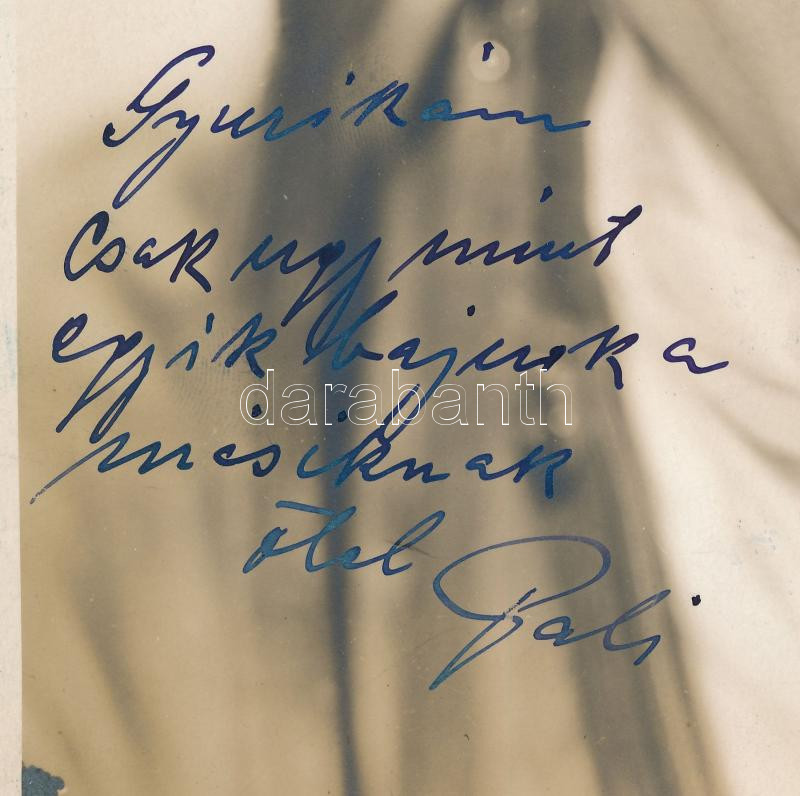 Gyurikám
Csak ugy mint
egyik bajuska
másiknak
ölel
Pali
darabanth